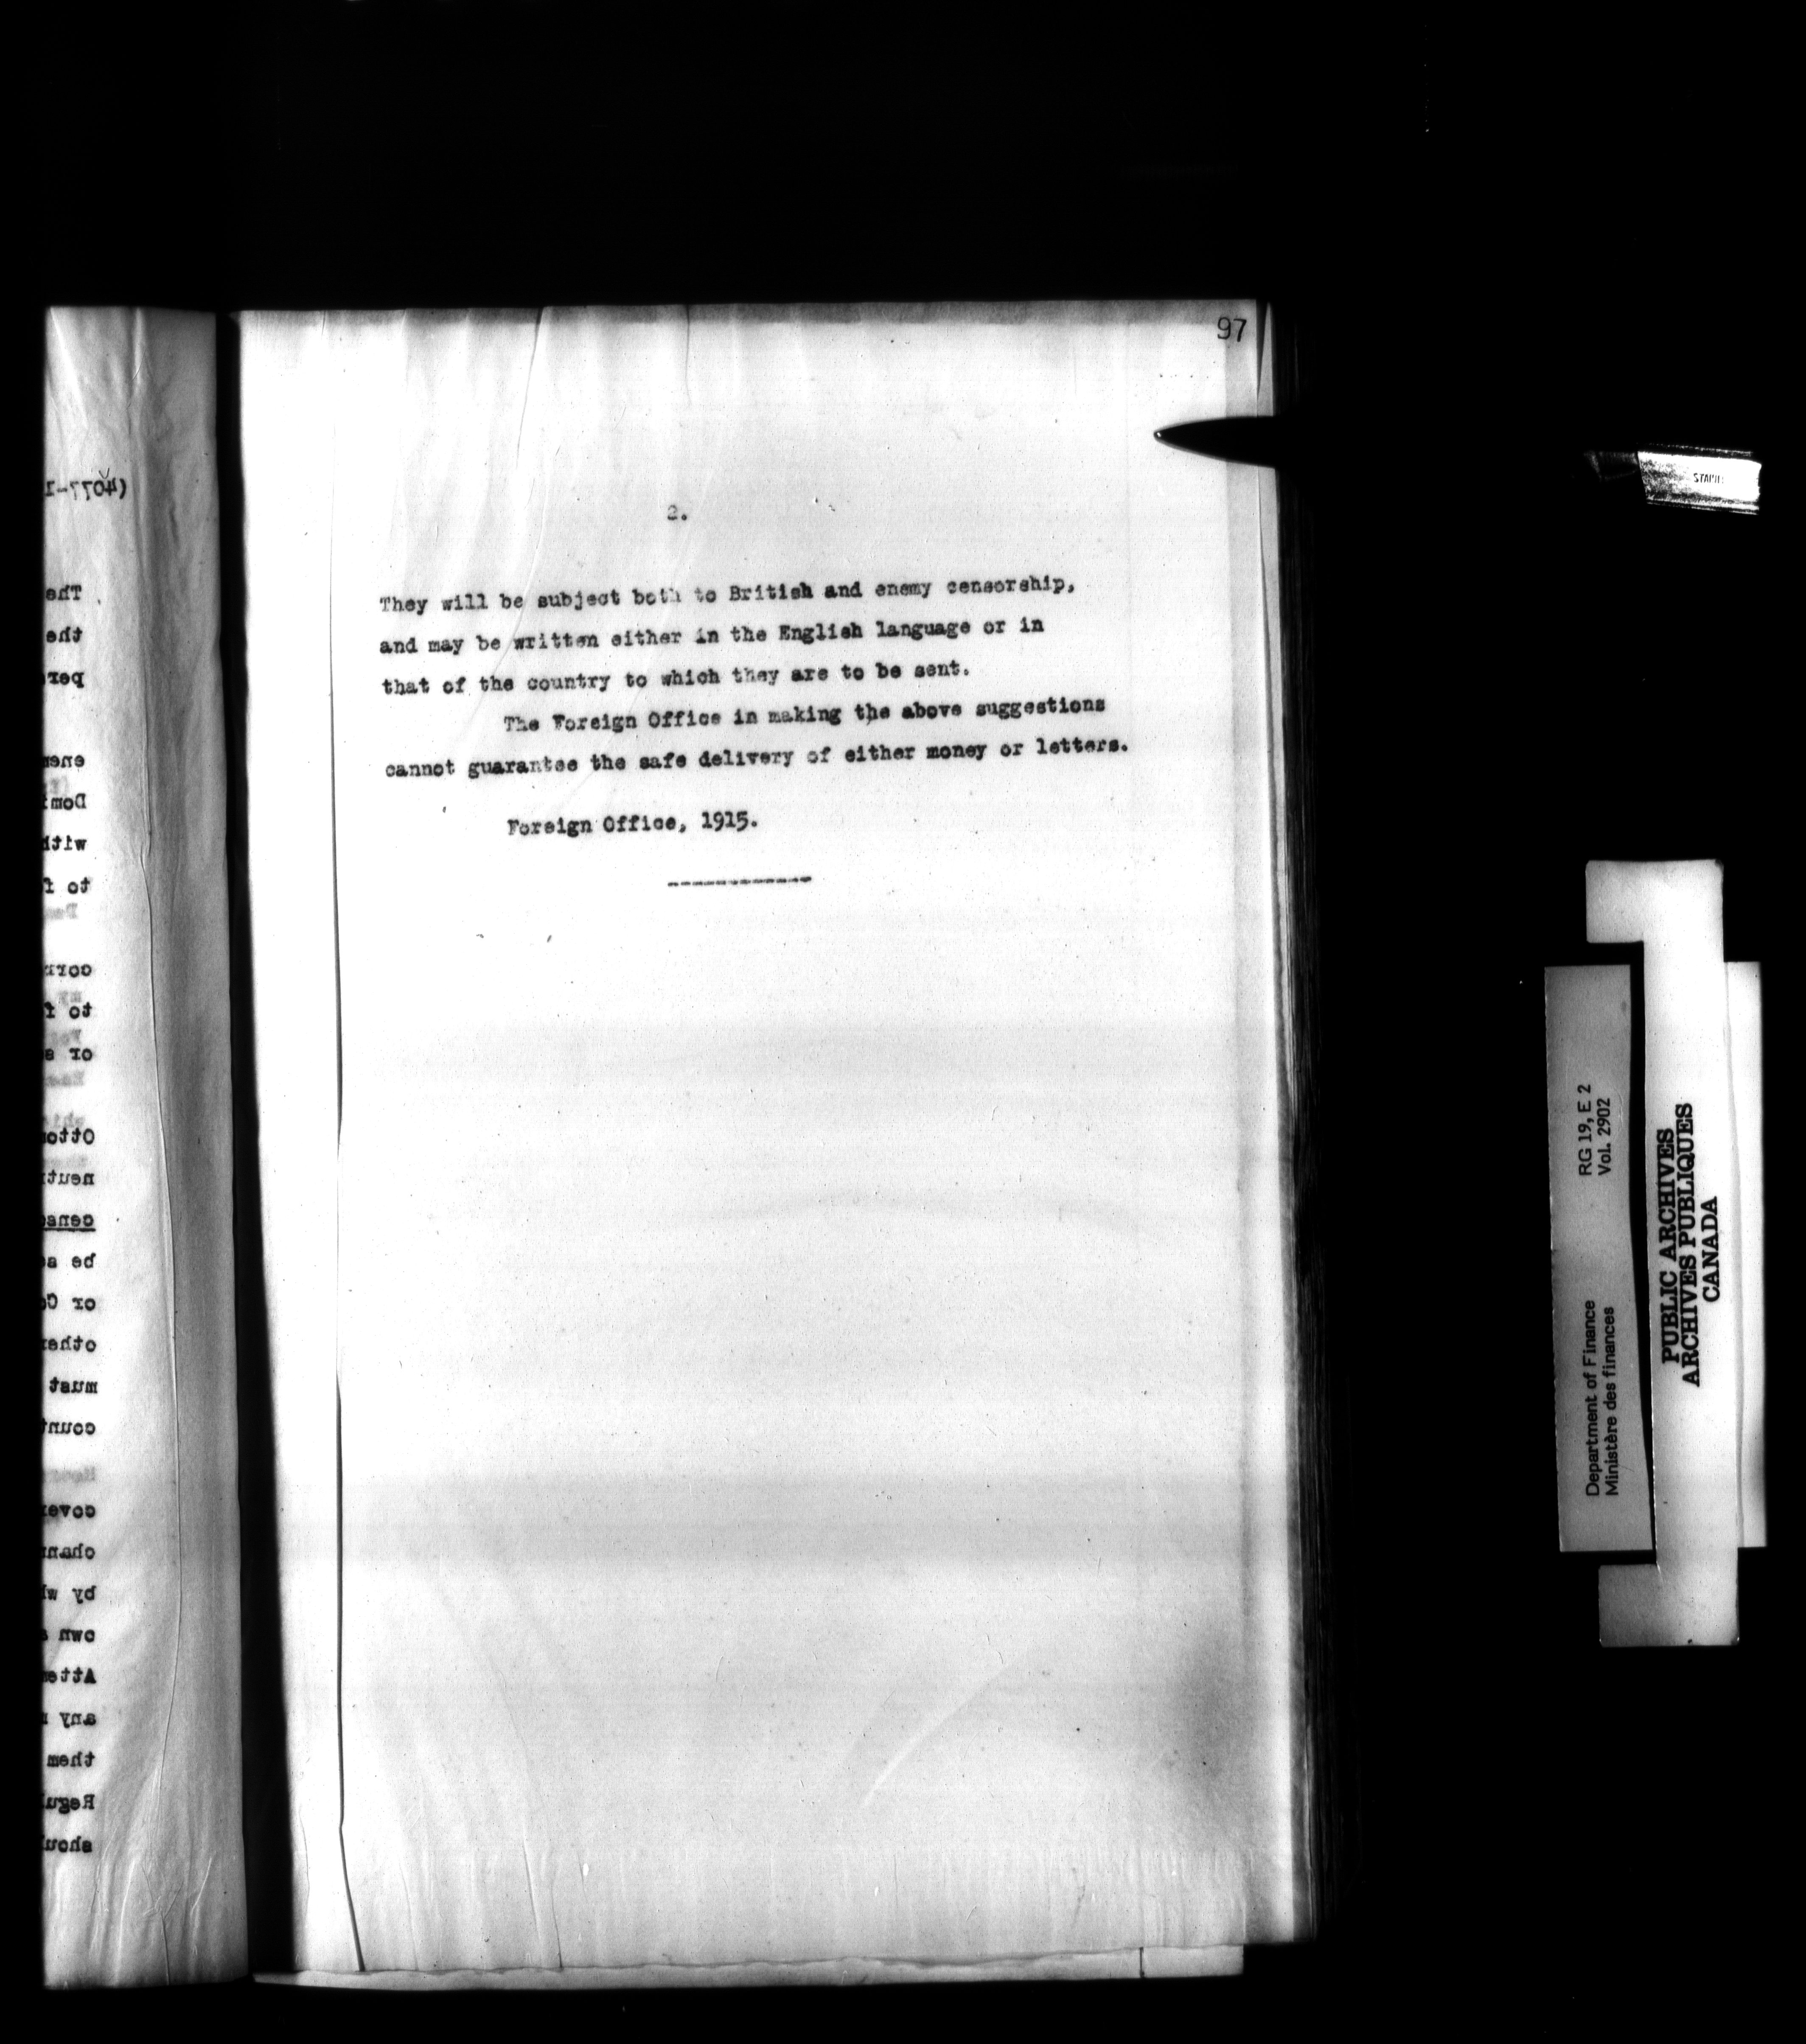 97
2.
They will be subject both to British and enemy censorship,
and may be written either in the English language or in
that of the country to which they are to be sent.
The Foreign Office in making the above suggestions
cannot guarantee the safe delivery of either money or letters.
Foreign Office, 1915.
Department of Finance RG 19, E 2
Ministère des finances Vol. 2902
PUBLIC ARCHIVES
ARCHIVES PUBLIQUES
CANADA